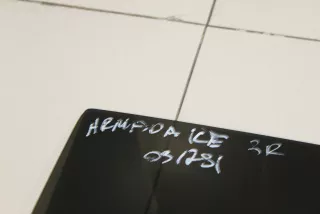 ARMADA ICE 2R
031281